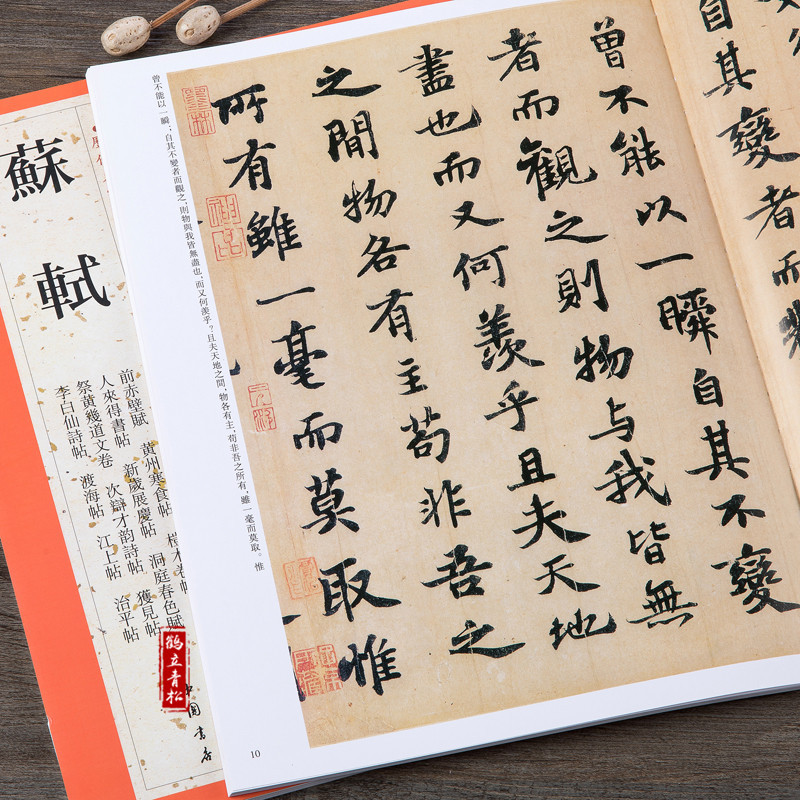 自其變者而
曾不能以一瞬自其不變
者而觀之則物与我皆無
盡也而又何羨乎且夫天地
之間物各有主苟非吾之
所有雖一毫而莫取惟
曾不能以一瞬；自其不變者而觀之，則物與我皆無盡也，而又何羨乎？且夫天地之間，物各有主，苟非吾之所有，雖一毫而莫取。惟
10
蘇軾
前赤壁賦 黃州寒食帖
人來得書帖 新歲展慶帖 洞庭春色賦
祭黃幾道文卷 次辯才韻詩帖 獲見帖
李白仙詩帖 渡海帖 江上帖 治平帖
中國書店
鶴立青松